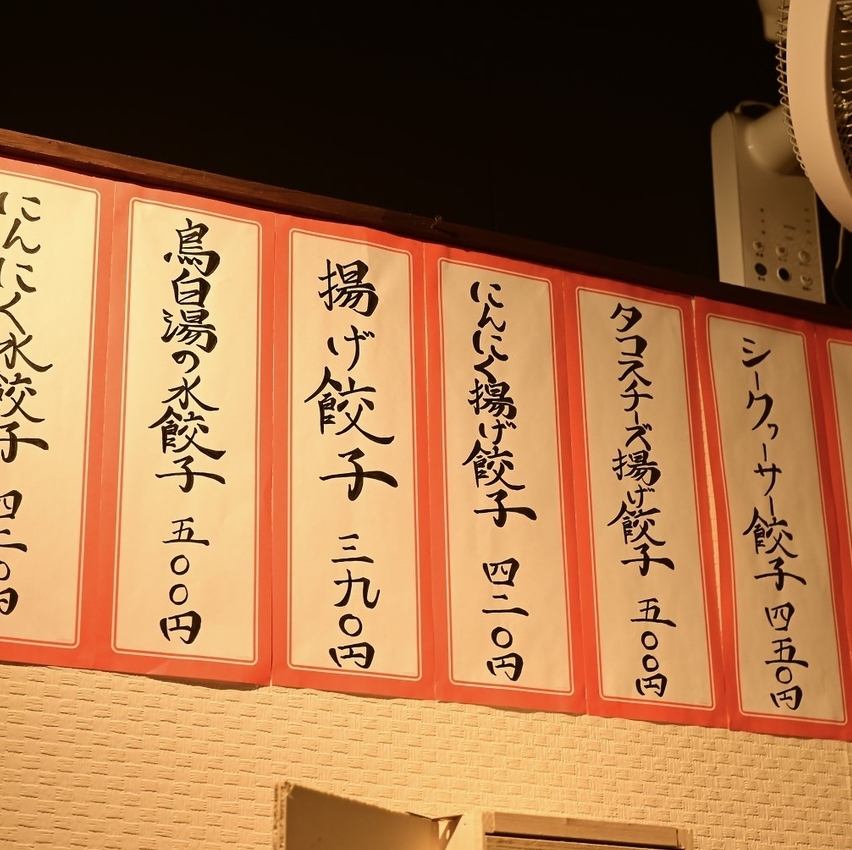 シークヮーサー餃子 四五〇円
タコスチーズ揚げ餃子 五〇〇円
にんにく揚げ餃子 四二〇円
揚げ餃子 三九〇円
鳥白湯の水餃子 五〇〇円
にんにく水餃子 四二〇円